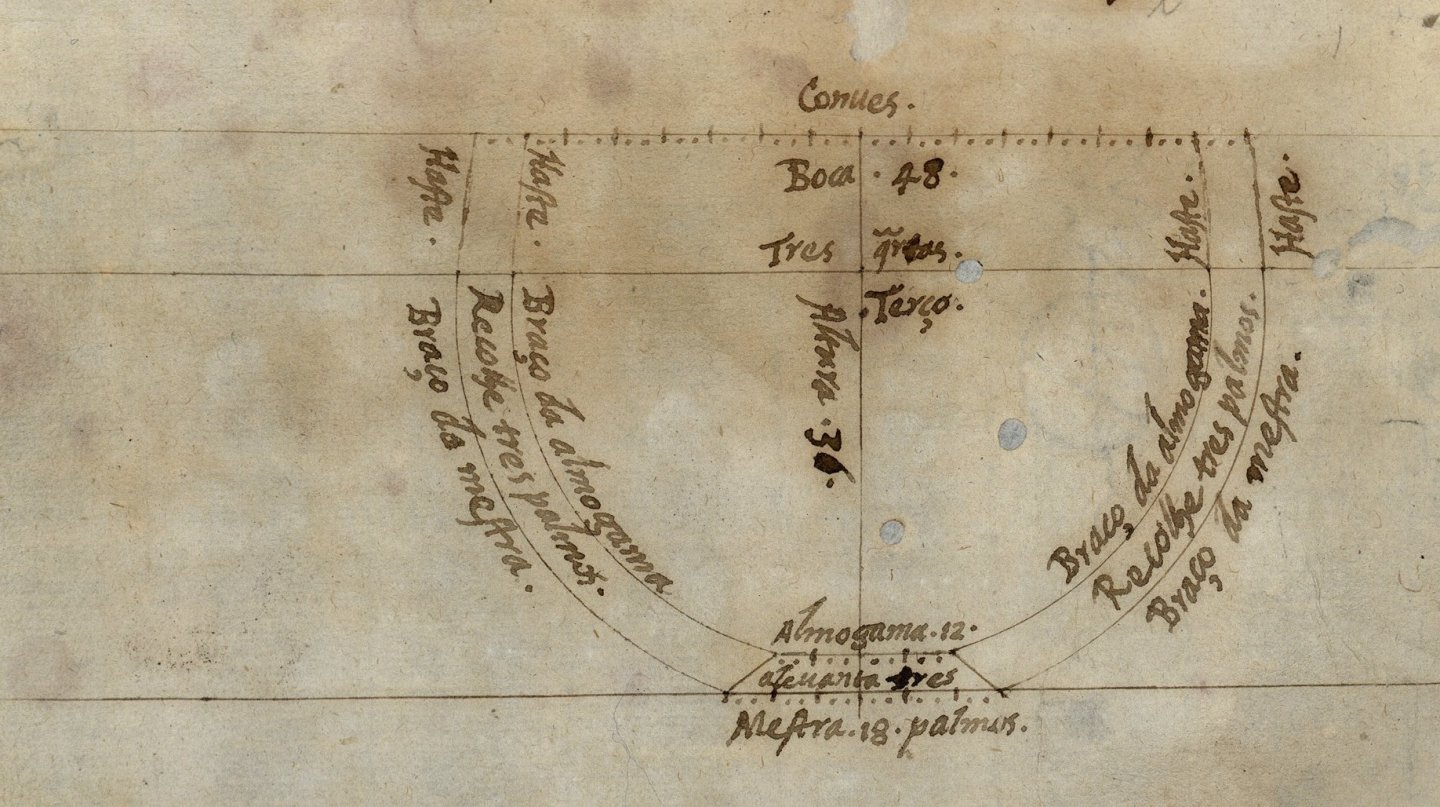 Conues.
Haste.
Haste.
Boca. 48.
Haste.
Haste.
Tres q̃rtas.
Terço.
Altura. 36.
Braço da mestra.
Recolhe tres palmos.
Braço da almogama
Braço da almogama.
Recolhe tres palmos.
Braço da mestra.
Almogama. 12.
aleuanta tres
Mestra. 18. palmos.